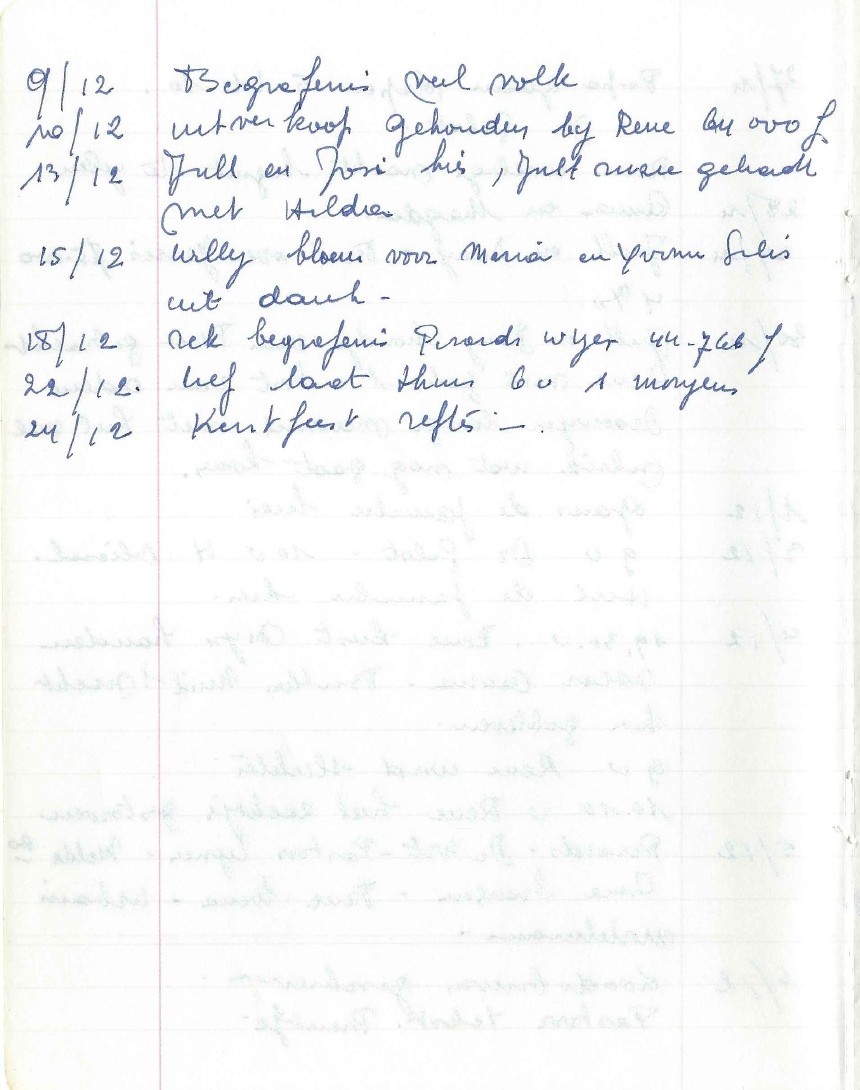 9/12 Begrafenis veel volk
10/12 uitverkoop gehouden by Rene 64 000 f
13/12 Jull en Josi hier, Jull ruzie gehadt
met Hilda
15/12 Willy bloem voor Maria en Yvonne
uit dank -
18/12 rek begrafenis Prards wyer 44-766 f
22/12. laat thuis 6 u morgens
24/12 Kerstfeest refter - .